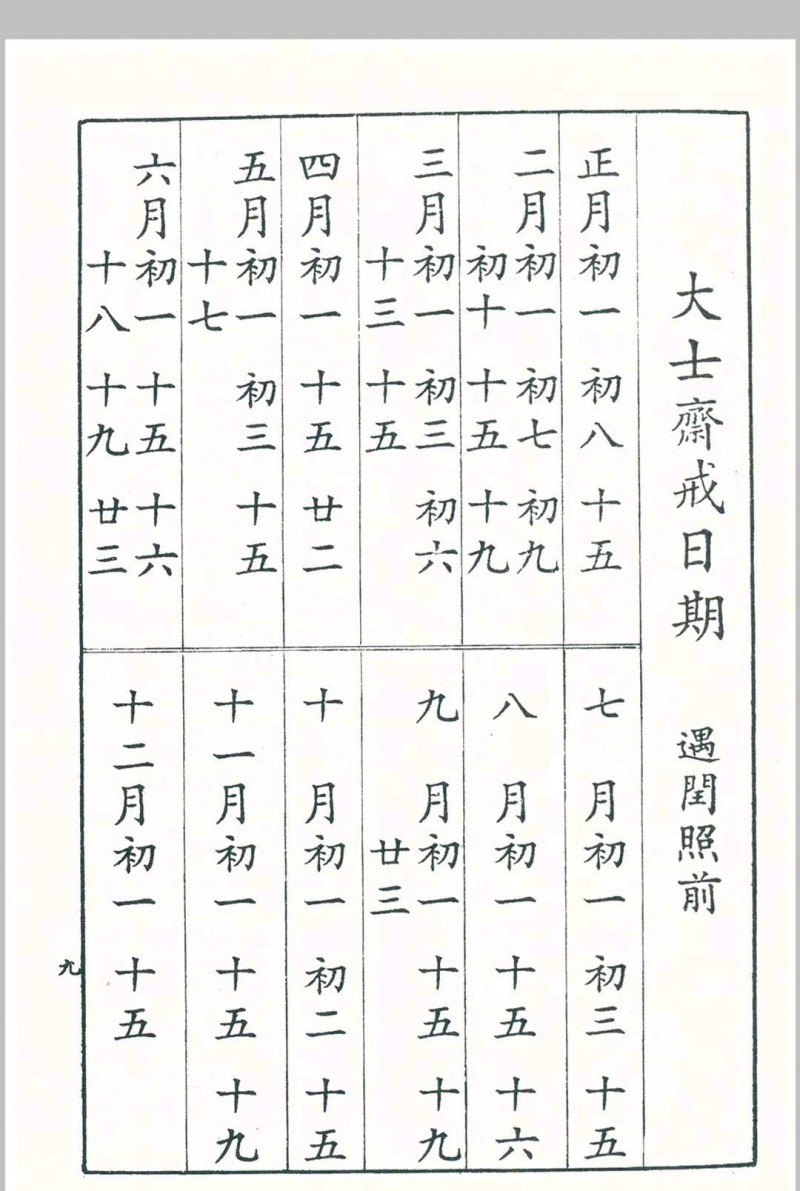 大士齋戒日期　遇閏照前
正月初一　初八　十五
二月初一　初七　初九
初十　十五　十九
三月初一　初三　初六
十三　十五
四月初一　十五　廿二
五月初一　初三　十五
十七
六月初一　十五　十六
十八　十九　廿三
七月初一　初三　十五
八月初一　十五　十六
九月初一　十五　十九
廿三
十月初一　初二　十五
十一月初一　十五　十九
十二月初一　十五
九